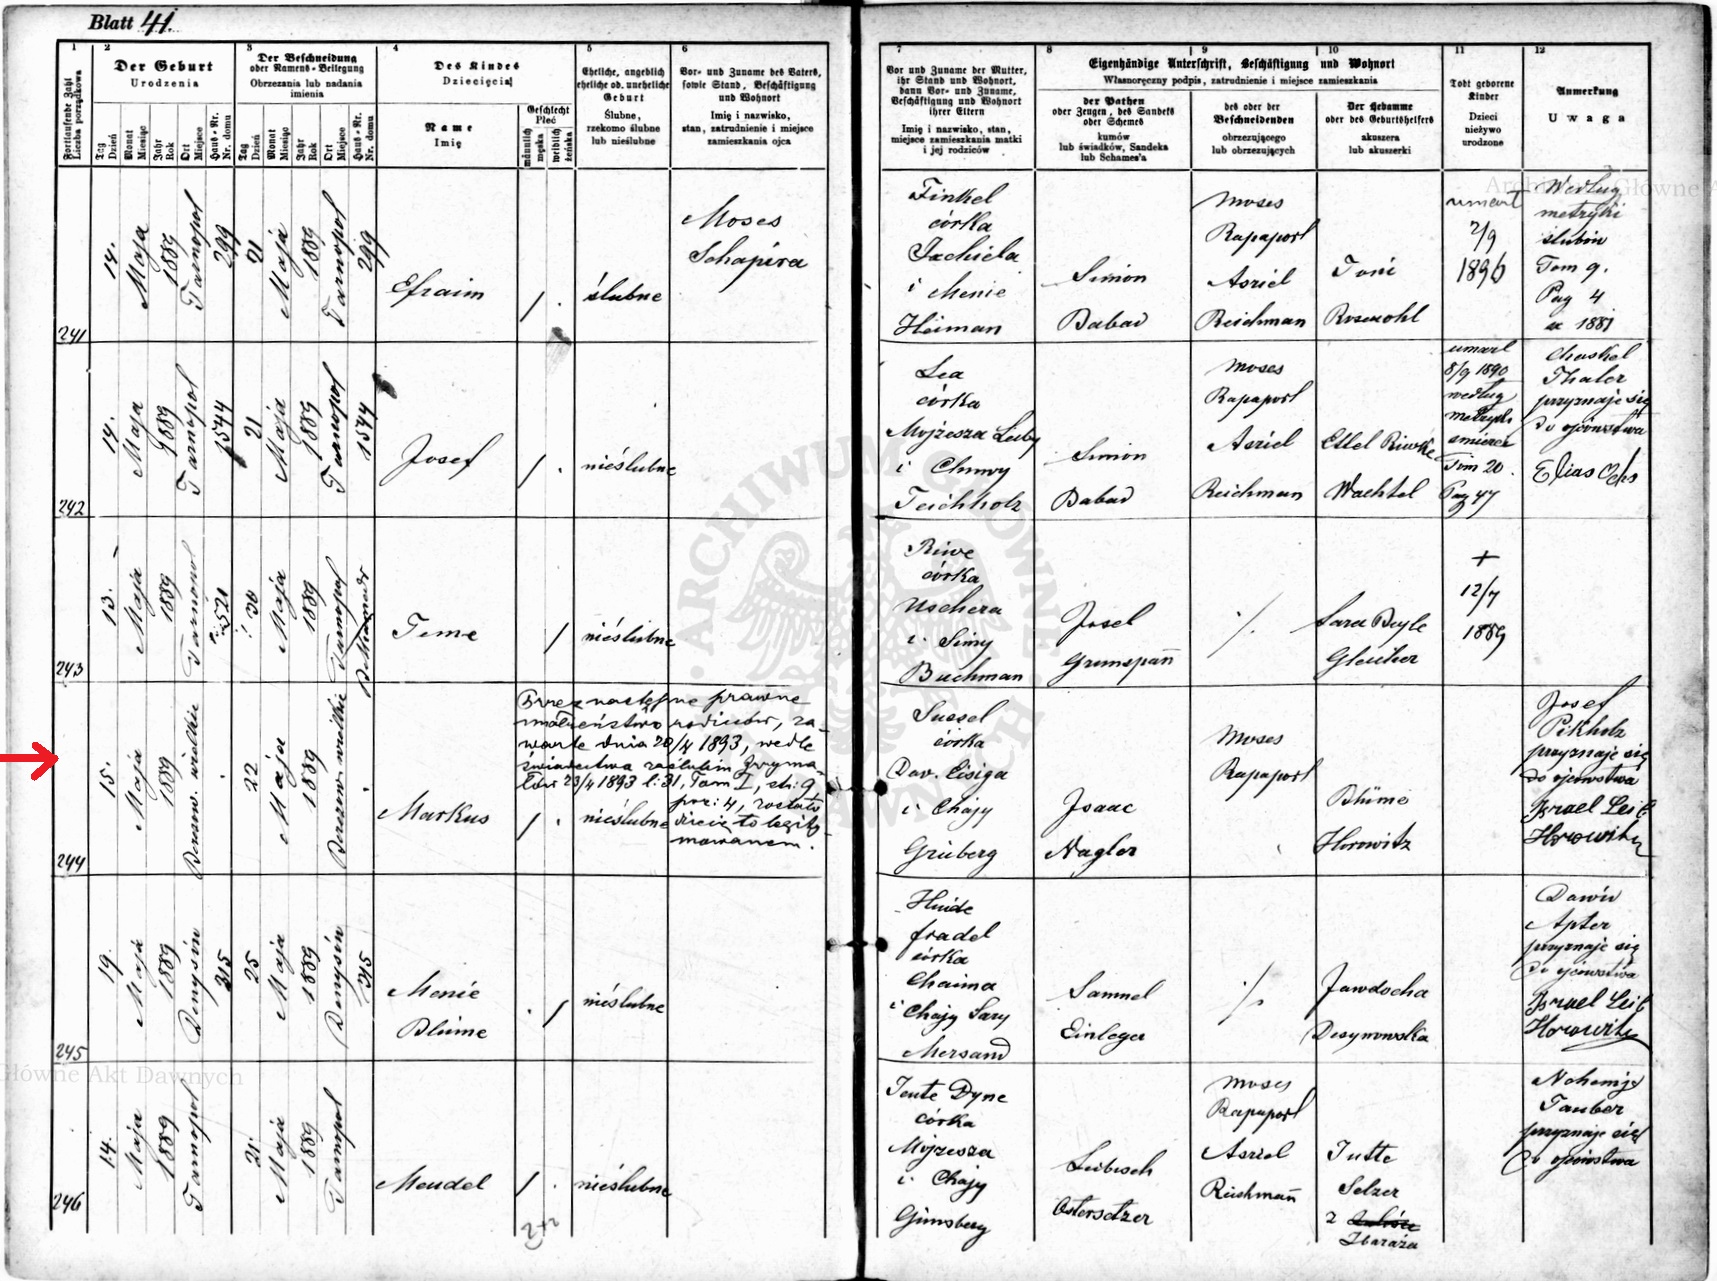 Blatt 41.
1
2
3
4
5
6
7
8
9
10
11
12
Fortlaufende Zahl
Liczba porządkowa
Der Geburt
Urodzenia
Tag
Dzień
Monat
Miesiąc
Jahr
Rok
Ort
Miejsce
Haus-Nr.
Nr. domu
Der Beschneidung
oder Namens-Beilegung
Obrzezania lub nadania
imienia
Tag
Dzień
Monat
Miesiąc
Jahr
Rok
Ort
Miejsce
Haus-Nr.
Nr. domu
Des Kindes
Dziecięcia
Name
Imię
Geschlecht
Płeć
männlich
męska
weiblich
żeńska
Eheliche, angeblich
eheliche od. uneheliche
Geburt
Ślubne,
rzekomo ślubne
lub nieślubne
Vor- und Zuname des Vaters,
sowie Stand, Beschäftigung
und Wohnort
Imię i nazwisko,
stan, zatrudnienie i miejsce
zamieszkania ojca
Vor und Zuname der Mutter,
ihr Stand und Wohnort,
dann Vor- und Zuname,
Beschäftigung und Wohnort
ihrer Eltern
Imię i nazwisko, stan,
miejsce zamieszkania matki
i jej rodziców
Eigenhändige Unterschrift, Beschäftigung und Wohnort
Własnoręczny podpis, zatrudnienie i miejsce zamieszkania
der Pathen
oder Zeugen, des Sandeks
oder Schemes
kumów
lub świadków, Sandeka
lub Schames'a
des oder der
Beschneidenden
obrzezującego
lub obrzezujących
Der Hebamme
oder des Geburtshelfers
akuszera
lub akuszerki
Todt geborene
Kinder
Dzieci
nieżywo
urodzone
Anmerkung
Uwaga
241
14.
Maja
1889
Tarnopol
299
21
Maja
1889
Tarnopol
299
Efraim
/ .
ślubne
Moses
Schapira
Finkel
córka
Jachiela
i Menie
Heiman
Simon
Babad
Moses
Rapaport
Asriel
Reichman
Toni
Rosenohl
umarł
2/9
1896
Według
metryki
ślubów
Tom 9.
Pag 4
ex 1881
242
14.
Maja
1889
Tarnopol
1544
21
Maja
1889
Tarnopol
1544
Josef
/ .
nieślubne
Lea
córka
Mojżesza Leiby
i Chawy
Teichholz
Simon
Babad
Moses
Rapaport
Asriel
Reichman
Ettel Riwke
Wachtel
umarł
8/9 1890
według
metryki
śmierci
Tom 20.
Pag 47
Chaskel
Thaler
przyznaje się
do ojcowstwa
Elias Ochs
243
13.
Maja
1889
Tarnopol
521
30
Maja
1889
Tarnopol
Teme
/
nieślubne
Riwe
córka
Uschera
i Simy
Buchman
Josel
Grunspan
/.
Sara Beyle
+
12/7
1889
244
15.
Maja
1889
Berezow. wielkie
22
Maja
1889
Berezow. wielkie
Markus
/ .
nieślubne
Przez następne prawne
małżeństwo rodziców, za-
warte dnia 20/4 1893, wedle
świadectwa zaślubin Grzyma-
łów 23/4 1893 l: 31, Tom I, str: 9,
poz: 4, zostało
dziecię to legity-
mowanem.
Sussel
córka
Dav. Eisiga
i Chajy
Grüberg
Isaac
Nagler
Moses
Rapaport
Blüme
Horowitz
Josef
Pikholz
przyznaje się
do ojcowstwa
Israel Leib
Horowitz
245
19.
Maja
1889
Denysów
315
25
Maja
1889
Denysów
315
Menie
Blüme
. /
nieślubne
Hinde
fradel
córka
Chaima
i Chajy Sary
Mersand
Samuel
Einleger
/.
Jawdocha
Desynowska
Dawid
Apter
przyznaje się
do ojcowstwa
Israel Leib
Horowitz
246
14.
Maja
1889
Tarnopol
21.
Maja
1889
Tarnopol
Mendel
/ .
nieślubne
Jente Dyne
córka
Mojżesza
i Chajy
Ginsberg
Leibisch
Ostersetzer
Moses
Rapaport
Asriel
Reichman
Jutte
Selzer
z
Zbaraża
Nehemje
Tauber
przyznaje się
do ojcowstwa
2+2
ARCHIWUM GŁÓWNE AKT DAWNYCH
Archiwum Główne A
Główne Akt Dawnych